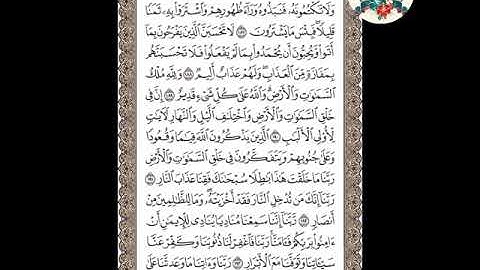 وَلَا تَكْتُمُونَهُۥ فَنَبَذُوهُ وَرَآءَ ظُهُورِهِمْ وَٱشْتَرَوْا۟ بِهِۦ ثَمَنًا
قَلِيلًا ۖ فَبِئْسَ مَا يَشْتَرُونَ ١٨٧ لَا تَحْسَبَنَّ ٱلَّذِينَ يَفْرَحُونَ بِمَآ
أَتَوا۟ وَّيُحِبُّونَ أَن يُحْمَدُوا۟ بِمَا لَمْ يَفْعَلُوا۟ فَلَا تَحْسَبَنَّهُم
بِمَفَازَةٍ مِّنَ ٱلْعَذَابِ ۖ وَلَهُمْ عَذَابٌ أَلِيمٌ ١٨٨ وَلِلَّهِ مُلْكُ
ٱلسَّمَٰوَٰتِ وَٱلْأَرْضِ ۗ وَٱللَّهُ عَلَىٰ كُلِّ شَىْءٍ قَدِيرٌ ١٨٩ إِنَّ فِى
خَلْقِ ٱلسَّمَٰوَٰتِ وَٱلْأَرْضِ وَٱخْتِلَٰفِ ٱلَّيْلِ وَٱلنَّهَارِ لَءَايَٰتٍ
لِّأُو۟لِى ٱلْأَلْبَٰبِ ١٩٠ ٱلَّذِينَ يَذْكُرُونَ ٱللَّهَ قِيَٰمًا وَقُعُودًا
وَعَلَىٰ جُنُوبِهِمْ وَيَتَفَكَّرُونَ فِى خَلْقِ ٱلسَّمَٰوَٰتِ وَٱلْأَرْضِ
رَبَّنَا مَا خَلَقْتَ هَٰذَا بَٰطِلًا سُبْحَٰنَكَ فَقِنَا عَذَابَ ٱلنَّارِ ١٩١
رَبَّنَآ إِنَّكَ مَن تُدْخِلِ ٱلنَّارَ فَقَدْ أَخْزَيْتَهُۥ ۖ وَمَا لِلظَّٰلِمِينَ مِنْ
أَنصَارٍ ١٩٢ رَّبَّنَآ إِنَّنَا سَمِعْنَا مُنَادِيًا يُنَادِى لِلْإِيمَٰنِ أَنْ
ءَامِنُوا۟ بِرَبِّكُمْ فَـَٔامَنَّا ۚ رَبَّنَا فَٱغْفِرْ لَنَا ذُنُوبَنَا وَكَفِّرْ عَنَّا
سَيِّـَٔاتِنَا وَتَوَفَّنَا مَعَ ٱلْأَبْرَارِ ١٩٣ رَبَّنَا وَءَاتِنَا مَا وَعَدتَّنَا عَلَىٰ